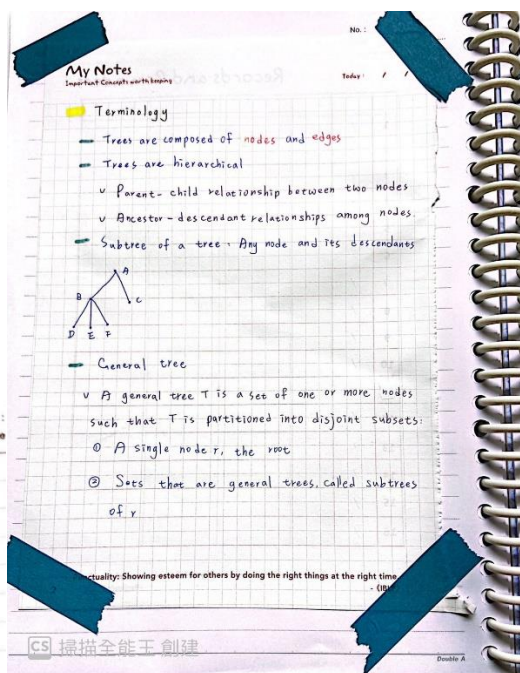 No. :
My Notes
Important Concepts worth keeping
Today : / /
Terminology
Trees are composed of nodes and edges
Trees are hierarchical
v Parent-child relationship between two nodes
v Ancestor-descendant relationships among nodes
Subtree of a tree : Any node and its descendants
A
B C
D E F
General tree
v A general tree T is a set of one or more nodes
such that T is partitioned into disjoint subsets:
① A single node r, the root
② Sets that are general trees, called subtrees
of r
Punctuality: Showing esteem for others by doing the right things at the right time.
CS 掃描全能王 創建
Double A